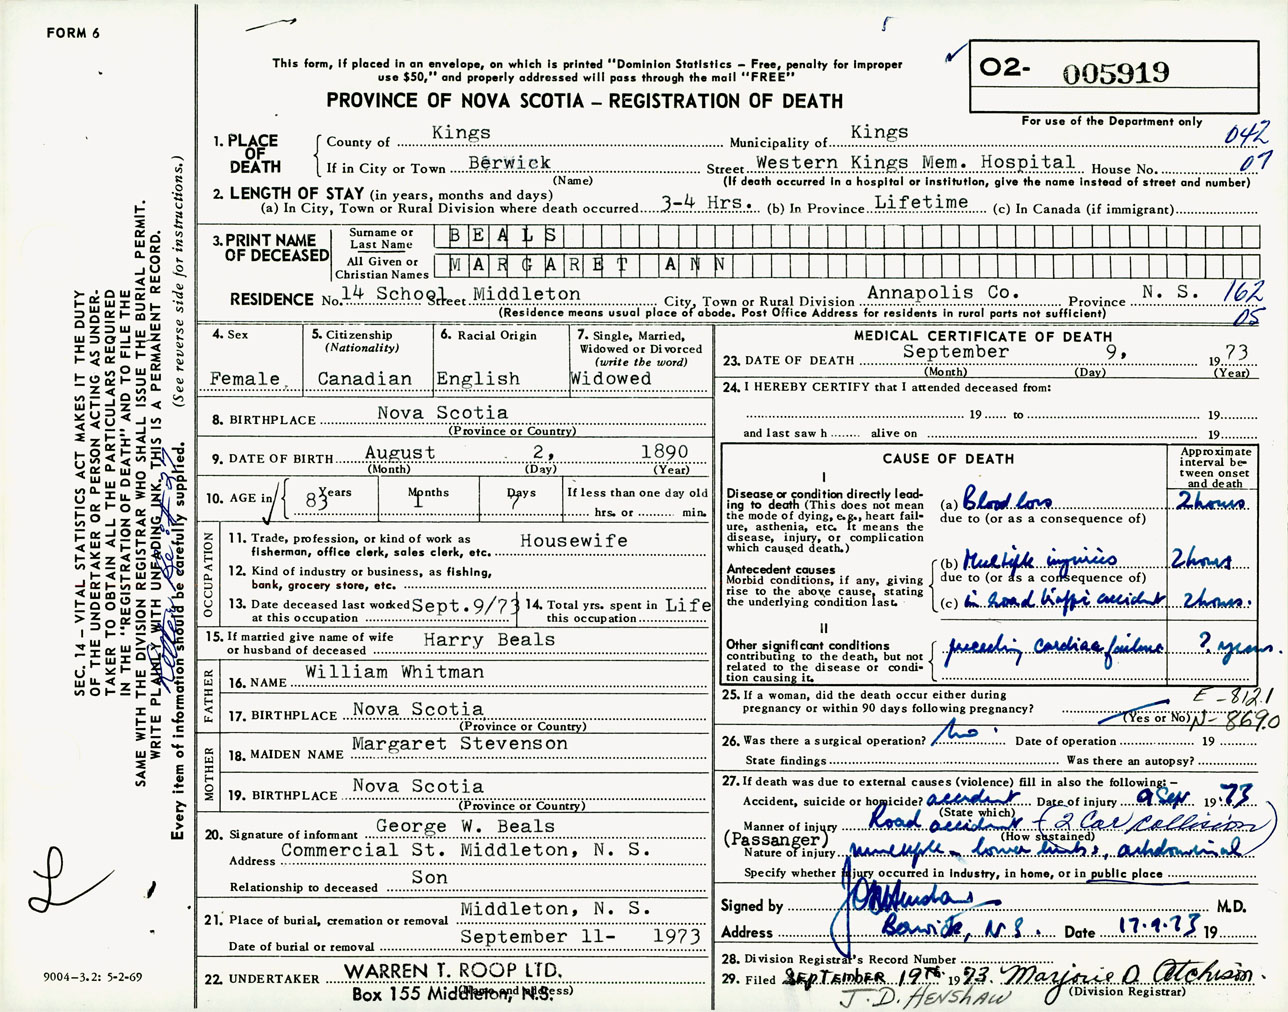 FORM 6
This form, if placed in an envelope, on which is printed "Dominion Statistics – Free, penalty for improper
use $50," and properly addressed will pass through the mail "FREE"
PROVINCE OF NOVA SCOTIA – REGISTRATION OF DEATH
O2- 005919
For use of the Department only
042
07
1. PLACE OF DEATH
County of Kings Municipality of Kings
If in City or Town Berwick Street Western Kings Mem. Hospital House No.
(Name) (If death occurred in a hospital or institution, give the name instead of street and number)
2. LENGTH OF STAY (in years, months and days)
(a) In City, Town or Rural Division where death occurred 3-4 Hrs. (b) In Province Lifetime (c) In Canada (if immigrant)
3. PRINT NAME OF DECEASED
Surname or Last Name BEALS
All Given or Christian Names MARGARET ANN
RESIDENCE No. 14 School Street Middleton City, Town or Rural Division Annapolis Co. Province N. S. 162
(Residence means usual place of abode. Post Office Address for residents in rural parts not sufficient) 05
4. Sex
Female
5. Citizenship
(Nationality)
Canadian
6. Racial Origin
English
7. Single, Married,
Widowed or Divorced
(write the word)
Widowed
8. BIRTHPLACE Nova Scotia
(Province or Country)
9. DATE OF BIRTH August 2, 1890
(Month) (Day) (Year)
10. AGE in Years 83 Months 1 Days 7 If less than one day old
hrs. or min.
OCCUPATION
11. Trade, profession, or kind of work as
fisherman, office clerk, sales clerk, etc. Housewife
12. Kind of industry or business, as fishing,
bank, grocery store, etc.
13. Date deceased last worked Sept.9/73
at this occupation
14. Total yrs. spent in Life
this occupation
15. If married give name of wife
or husband of deceased Harry Beals
FATHER
16. NAME William Whitman
17. BIRTHPLACE Nova Scotia
(Province or Country)
MOTHER
18. MAIDEN NAME Margaret Stevenson
19. BIRTHPLACE Nova Scotia
(Province or Country)
20. Signature of informant George W. Beals
Address Commercial St. Middleton, N. S.
Relationship to deceased Son
21. Place of burial, cremation or removal Middleton, N. S.
Date of burial or removal September 11- 1973
22. UNDERTAKER WARREN T. ROOP LTD.
(Name and address)
Box 155 Middleton, N.S.
MEDICAL CERTIFICATE OF DEATH
23. DATE OF DEATH September 9, 1973
(Month) (Day) (Year)
24. I HEREBY CERTIFY that I attended deceased from:
19 to 19
and last saw h alive on 19
CAUSE OF DEATH
Approximate
interval be-
tween onset
and death
I
Disease or condition directly lead-
ing to death (This does not mean
the mode of dying, e.g., heart fail-
ure, asthenia, etc. It means the
disease, injury, or complication
which caused death.)
(a) Blood loss 2 hours
due to (or as a consequence of)
Antecedent causes
Morbid conditions, if any, giving
rise to the above cause, stating
the underlying condition last.
(b) Multiple injuries 2 hours
due to (or as a consequence of)
(c) in road traffic accident 2 hours.
II
Other significant conditions
contributing to the death, but not
related to the disease or condi-
tion causing it.
preceding cardiac failure ? years.
25. If a woman, did the death occur either during
pregnancy or within 90 days following pregnancy?
(Yes or No)
E-8121
N-8690
26. Was there a surgical operation? No. Date of operation 19
State findings Was there an autopsy?
27. If death was due to external causes (violence) fill in also the following:–
Accident, suicide or homicide? accident Date of injury 9 Sep 1973
(State which)
Manner of injury Road accident – (2 Car collision)
(How sustained)
(Passanger)
Nature of injury multiple – lower limbs, abdominal
Specify whether injury occurred in industry, in home, or in public place
Signed by J D Henshaw M.D.
Address Berwick, N S. Date 17.9.73 19
28. Division Registrar's Record Number
29. Filed SEPTEMBER 19TH 1973. Marjorie D. Atchison.
(Division Registrar)
J. D. HENSHAW
SEC. 14 – VITAL STATISTICS ACT MAKES IT THE DUTY
OF THE UNDERTAKER OR PERSON ACTING AS UNDER-
TAKER TO OBTAIN ALL THE PARTICULARS REQUIRED
IN THE "REGISTRATION OF DEATH" AND TO FILE THE
SAME WITH THE DIVISION REGISTRAR WHO SHALL ISSUE THE BURIAL PERMIT.
WRITE PLAINLY WITH UNFADING INK. THIS IS A PERMANENT RECORD.
Every item of information should be carefully supplied. (See reverse side for instructions.)
9004-3.2: 5-2-69